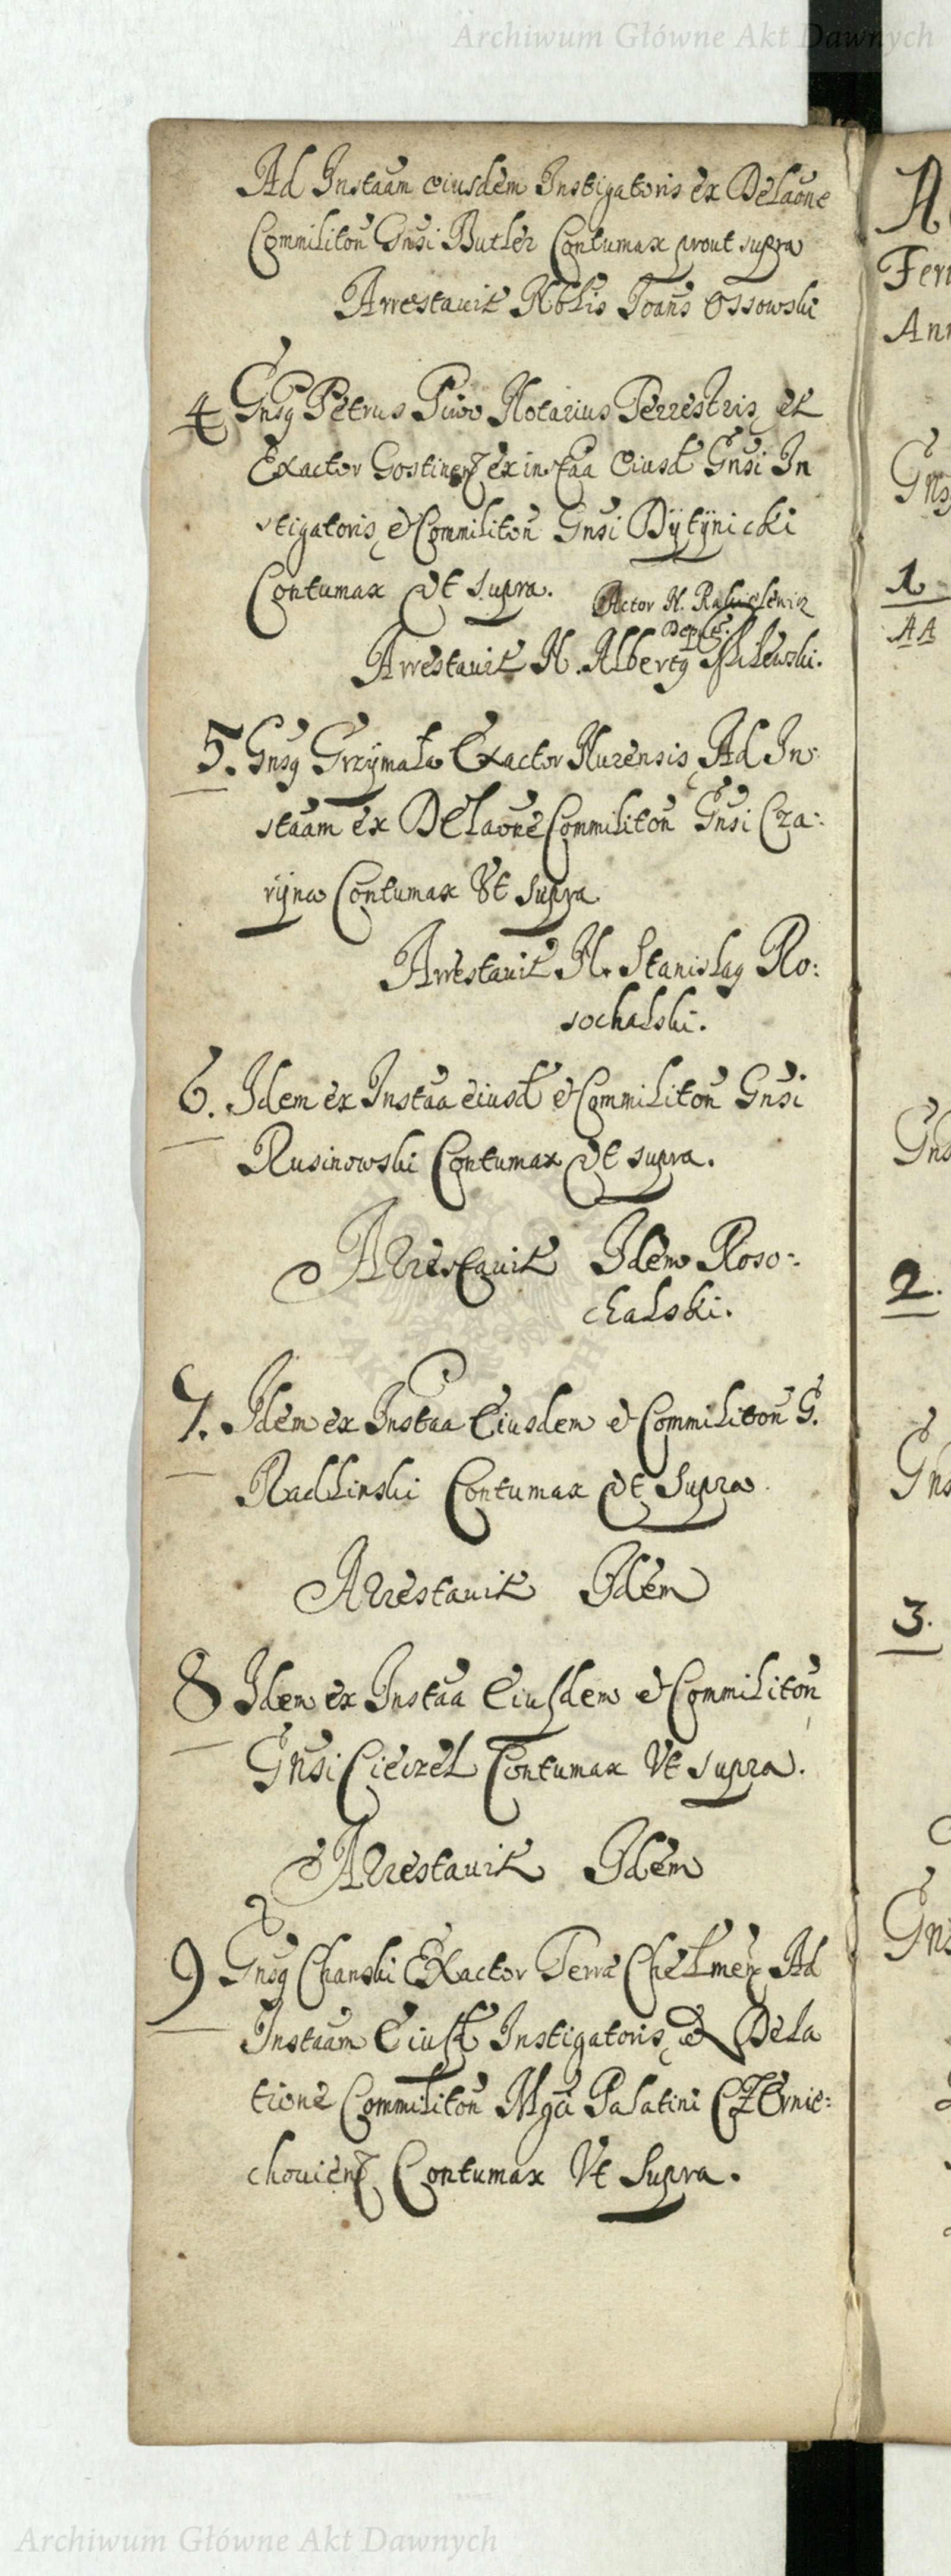 Archiwum Główne Akt Dawnych
Ad Instaam eiusdem Instigatoris ex Delaone
Commiliton Gnsi Butler Contumax prout supra
Arrestavit Nblis Joans Ossowski
4 Gnsg Petrus Piwo Notarius Terrestris, et
Exactor Gostinen ex instaa Eiusd Gnsi In
stigatoris, et Commiliton Gnsi Dÿtÿnicki
Contumax Vt supra. Actor N.
Arrestavit N. Albertg
5. Gnsg Grzÿmała Exactor Nurensis, Ad In
staam ex Delaone Commiliton Gnsi Cza:
rÿna Contumax Vt supra
Arrestavit N. Stanislag Ro:
sochalski.
6. Idem ex Instaa eiusd et Commiliton Gnsi
Rusinowski Contumax Vt supra.
Arrestavit Idem Roso:
chalski.
7. Idem ex Instaa Eiusdem et Commiliton G.
Radlinski Contumax Vt Supra
Arrestavit Idem
8 Idem ex Instaa Eiusdem et Commiliton
Gnsi Contumax Vt supra.
Arrestavit Idem
9 Gnsg Chanski Exactor Terræ Chełmen Ad
Instaam Eiusd Instigatoris, et Dela
tione Commiliton Mgci Palatini Czernie:
chovien Contumax Vt Supra.
A
Fern
Ann
Gns
1
AA
Gns
2.
Gns
3.
Gns
Archiwum Główne Akt Dawnych